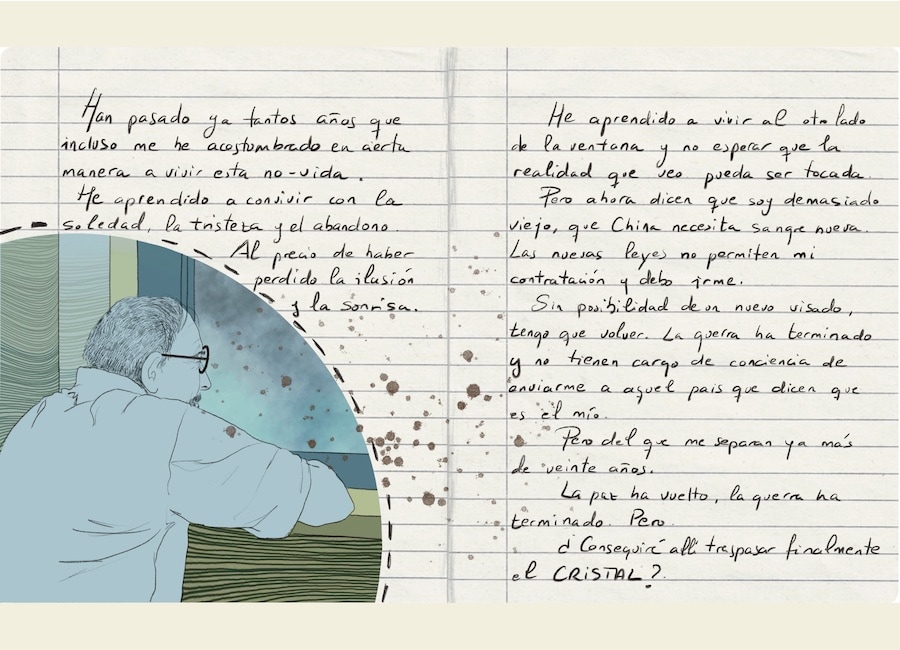 Han pasado ya tantos años que
incluso me he acostumbrado en cierta
manera a vivir esta no-vida.
He aprendido a convivir con la
soledad, la tristeza y el abandono.
Al precio de haber
perdido la ilusión
y la sonrisa.
He aprendido a vivir al otro lado
de la ventana y no esperar que la
realidad que veo pueda ser tocada.
Pero ahora dicen que soy demasiado
viejo, que China necesita sangre nueva.
Las nuevas leyes no permiten mi
contratación y debo irme.
Sin posibilidad de un nuevo visado,
tengo que volver. La guerra ha terminado
y no tienen cargo de conciencia de
enviarme a aquel pais que dicen que
es el mío.
Pero del que me separan ya más
de veinte años.
La paz ha vuelto, la guerra ha
terminado. Pero
¿Conseguiré allí traspasar finalmente
el CRISTAL?.